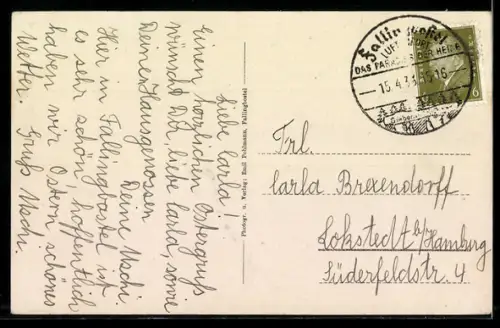 Liebe Carla!
Einen herzlichen Ostergruß
wünscht Dir, liebe Carla, sowie
Deinen Hausgenossen
Deine Uschi.
Hier in Fallingbostel ist
es sehr schön, hoffentlich
haben wir Ostern schönes
Wetter. Gruß Uschi.
Photogr. u. Verlag: Emil Pohlmann, Fallingbostel
Fallingbostel
LUFT
DAS PARADIES DER HEIDE
15.4.33.15-16
6
Frl.
Carla Brexendorff
Lokstedt b/Hamburg
Süderfeldstr. 4